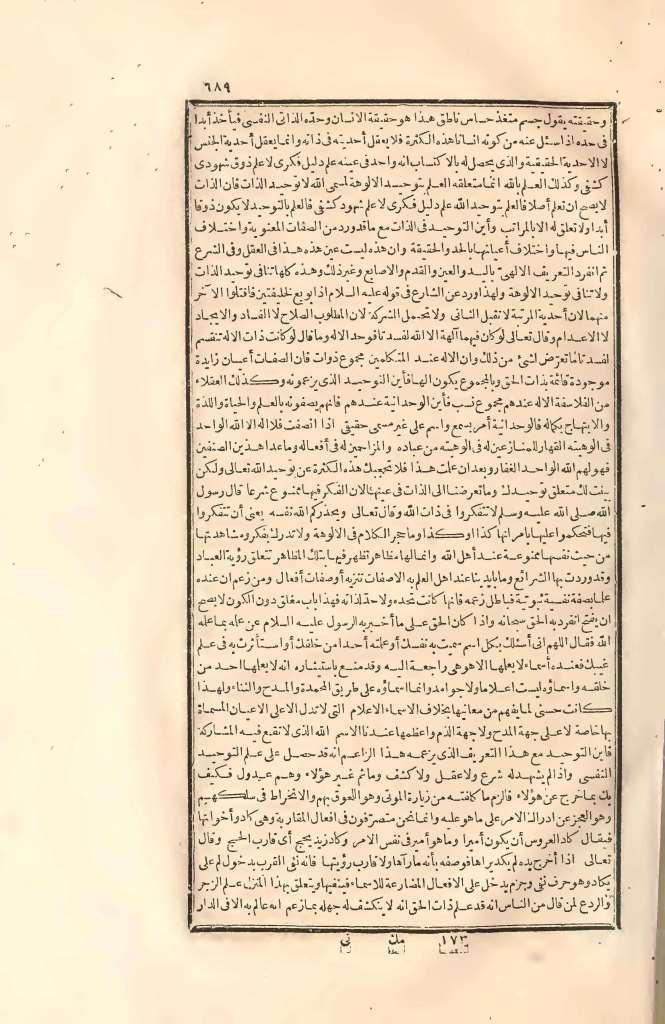 ٦٨٩
وحقيقته يقول جسم متغذ حساس ناطق هذا هو حقيقة الانسان وحدّه الذاتى النفسى فيأخذ أبدا
فى حدّه اذا سئل عنه من كونه انسانا هذه الكثرة فلا يعقل أحديته فى ذاته وانما يعقل أحدية الجنس
لا الاحدية الحقيقية والذى يحصل له بالاكتساب انه واحد فى عينه علم دليل فكرى لا علم ذوق شهودى
كشفى وكذلك العلم بالله انما متعلقه العلم بتوحيد الالوهة لمسمى الله لا توحيد الذات فان الذات
لا يصح ان تعلم أصلا فالعلم بتوحيد الله علم دليل فكرى لا علم شهود كشفى فالعلم بالتوحيد لا يكون ذوقا
أبدا ولا تعلق له الا بالمراتب وأين التوحيد فى الذات مع ما قد ورد من الصفات المعنوية واختلاف
الناس فيها واختلاف أعيانها بالحد والحقيقة وان هذه ليست عين هذه هذا فى العقل وفى الشرع
ثم انفرد التعريف الالهىّ باليد والعين والقدم والاصابع وغير ذلك وهذه كلها تنافى توحيد الذات
ولا تنافى توحيد الالوهة ولهذا ورد عن الشارع فى قوله عليه السلام اذا بويع لخليفتين فاقتلوا الآخر
منهما لان أحدية المرتبة لا تقبل الثانى ولا تحتمل الشركة لان المطلوب الصلاح لا الفساد والايجاد
لا الاعدام وقال تعالى لو كان فيهما آلهة الا الله لفسدتا فوحد الاله وما قال لو كانت ذات الاله تنقسم
لفسدتا ما تعرّض لشئ من ذلك وان الاله عند المتكلمين مجموع ذوات فان الصفات أعيان زايدة
موجودة قائمة بذات الحق وبالمجموع يكون الها فأين التوحيد الذى يزعمونه وكذلك العقلاء
من الفلاسفة الاله عندهم مجموع نسب فأين الوحدانية عندهم فانهم يصفونه بالعلم والحياة واللذة
والابتهاج بكماله فالوحدانية أمر يسمع واسم على غير مسمى حقيقى اذا انصفت فلا اله الا الله الواحد
فى الوهيته القهار للمنازعين له فى الوهيته من عباده والمزاحمين له فى أفعاله وما عدا هذين الصنفين
فهو لهم الله الواحد الغفار وبعد ان علمت هذا فلا تحجبك هذه الكثرة عن توحيد الله تعالى ولكن
بينت لك متعلق توحيدك وما تعرضنا الى الذات فى عينها لان الفكر فيها ممنوع شرعا قال رسول
الله صلى الله عليه وسلم لا تتفكروا فى ذات الله وقال تعالى ويحذركم الله نفسه يعنى أن تتفكروا
فيها فتحكموا عليها بامر انها كذا او كذا وما حجر الكلام فى الالوهة ولا تدرك بفكر ومشاهدتها
من حيث نفسها ممنوعة عند أهل الله وانما لها مظاهر تظهر فيها بتلك المظاهر تتعلق رؤية العباد
وقد وردت بها الشرائع وما بايدينا عند اهل العلم به الا صفات تنزيه أو صفات أفعال ومن زعم ان عنده
علما بصفة نفسية ثبوتية فباطل زعمه فانها كانت تحده ولا حد لذاته فهذا باب مغلق دون الكون لا يصح
ان يفتح انفرد به الحق سبحانه واذا كان الحق على ما أخبر به الرسول عليه السلام عن علمه بما علمه
الله فقال اللهم انى أسئلك بكل اسم سميت به نفسك أو علمته أحدا من خلقك أو استأثرت به فى علم
غيبك فعنده أسماء لا يعلمها الا هو هى راجعة اليه وقد منع باستيثاره انه لا يعلمها احد من
خلقه واسماؤه ليست اعلاما ولا جوامد وانما اسماؤه على طريق المحمدة والمدح والثناء ولهذا
كانت حسنى لما يفهم من معانيها بخلاف الاسماء الاعلام التى لا تدل الا على الاعيان المسماة
بها خاصة لا على جهة المدح ولا جهة الذم واعظمها عندنا الاسم الله الذى لا تقع فيه المشاركة
فاين التوحيد مع هذا التعريف الذى يزعمه هذا الزاعم انه قد حصل على علم التوحيد
النفسى واذا لم يشهد له شرع ولا عقل ولا كشف وما ثم غير هؤلاء وهم عدول فكيف
بك بما خرج عن هؤلاء فالزم ما كلفته من زيارة الموتى وهو اللحوق بهم والانخراط فى سلكهم
وهو العجز عن ادراك الامر على ما هو عليه وانما نحن متصرّفون فى افعال المقاربة وهى كاد وأخواتها
فيقال كاد العروس أن يكون أميرا وما هو أمير فى نفس الامر وكاد زيد يحج أى قارب الحج وقال
تعالى اذا أخرج يده لم يكد يراها فوصفه بأنه ما رآها ولا قارب رؤيتها فانه نفى القرب بدخول لم على
يكاد وهو حرف نفى وجزم يدخل على الافعال المضارعة للاسماء فينفيها ويتعلق بهذا المنزل علم الزجر
والردع لمن قال من الناس انه قد علم ذات الحق انه لا ينكشف له جهله بما زعم انه عالم به الا فى الدار
١٧٣ مك نى